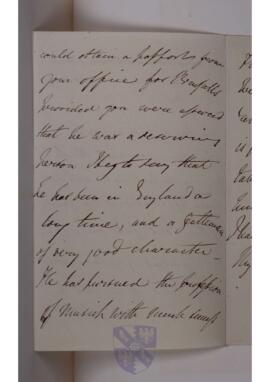 could obtain a passport from
your office for Brussells
provided you were assured
that he was a deserving
person I beg to say that
he has been in England a
long time, and a gentleman
of very good character —
He has pursued the profession
of Musick with much success